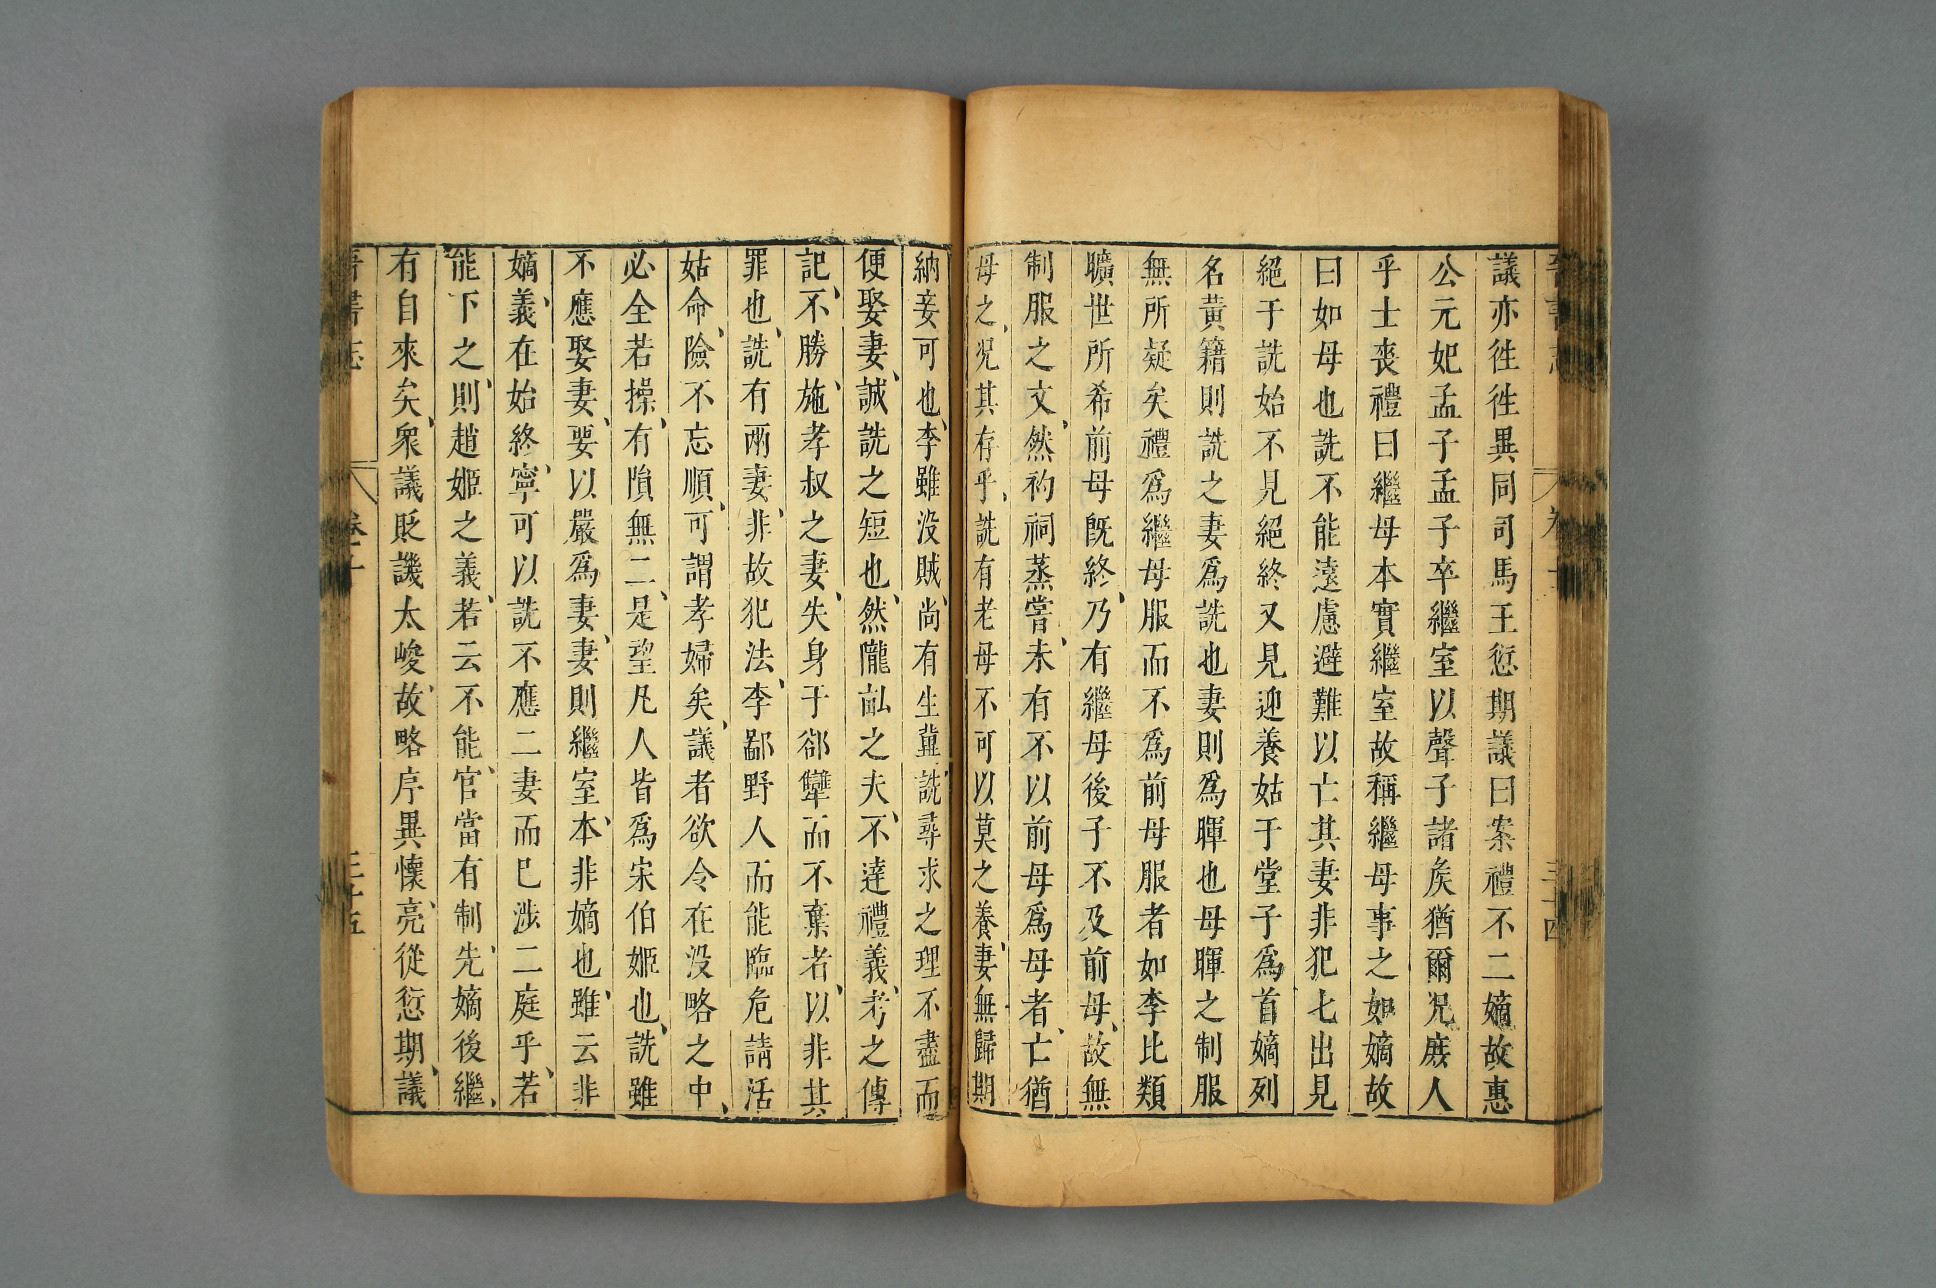 議亦徃徃異同司馬王愆期議曰案禮不二嫡故惠
公元妃孟子孟子卒繼室以聲子諸矦猶爾况庻人
乎士丧禮曰繼母本實繼室故稱繼母事之如嫡故
曰如母也詵不能遠慮避難以亡其妻非犯七出見
絕于詵始不見絕終又見迎養姑于堂子爲首嫡列
名黄籍則詵之妻爲詵也妻則爲暉也母暉之制服
無所疑矣禮爲繼母服而不爲前母服者如李比類
曠世所希前母旣終乃有繼母後子不及前母故無
制服之文然礿祠蒸嘗未有不以前母爲母者亡猶
母之况其存乎詵有老母不可以莫之養妻無歸期
納妾可也李雖没賊尚有生冀詵尋求之理不盡而
便娶妻誠詵之短也然隴畝之夫不達禮義考之傳
記不勝施孝叔之妻失身于郤犫而不棄者以非其
罪也詵有兩妻非故犯法李鄙野人而能臨危請活
姑命險不忘順可謂孝婦矣議者欲令在没略之中
必全若操有隕無二是望凡人皆爲宋伯姬也詵雖
不應娶妻要以嚴爲妻妻則繼室本非嫡也雖云非
嫡義在始終寧可以詵不應二妻而巳涉二庭乎若
能下之則趙姬之義若云不能官當有制先嫡後繼
有自來矣衆議貶譏太峻故略序異懷亮從愆期議
晉書志 卷二十 三十五